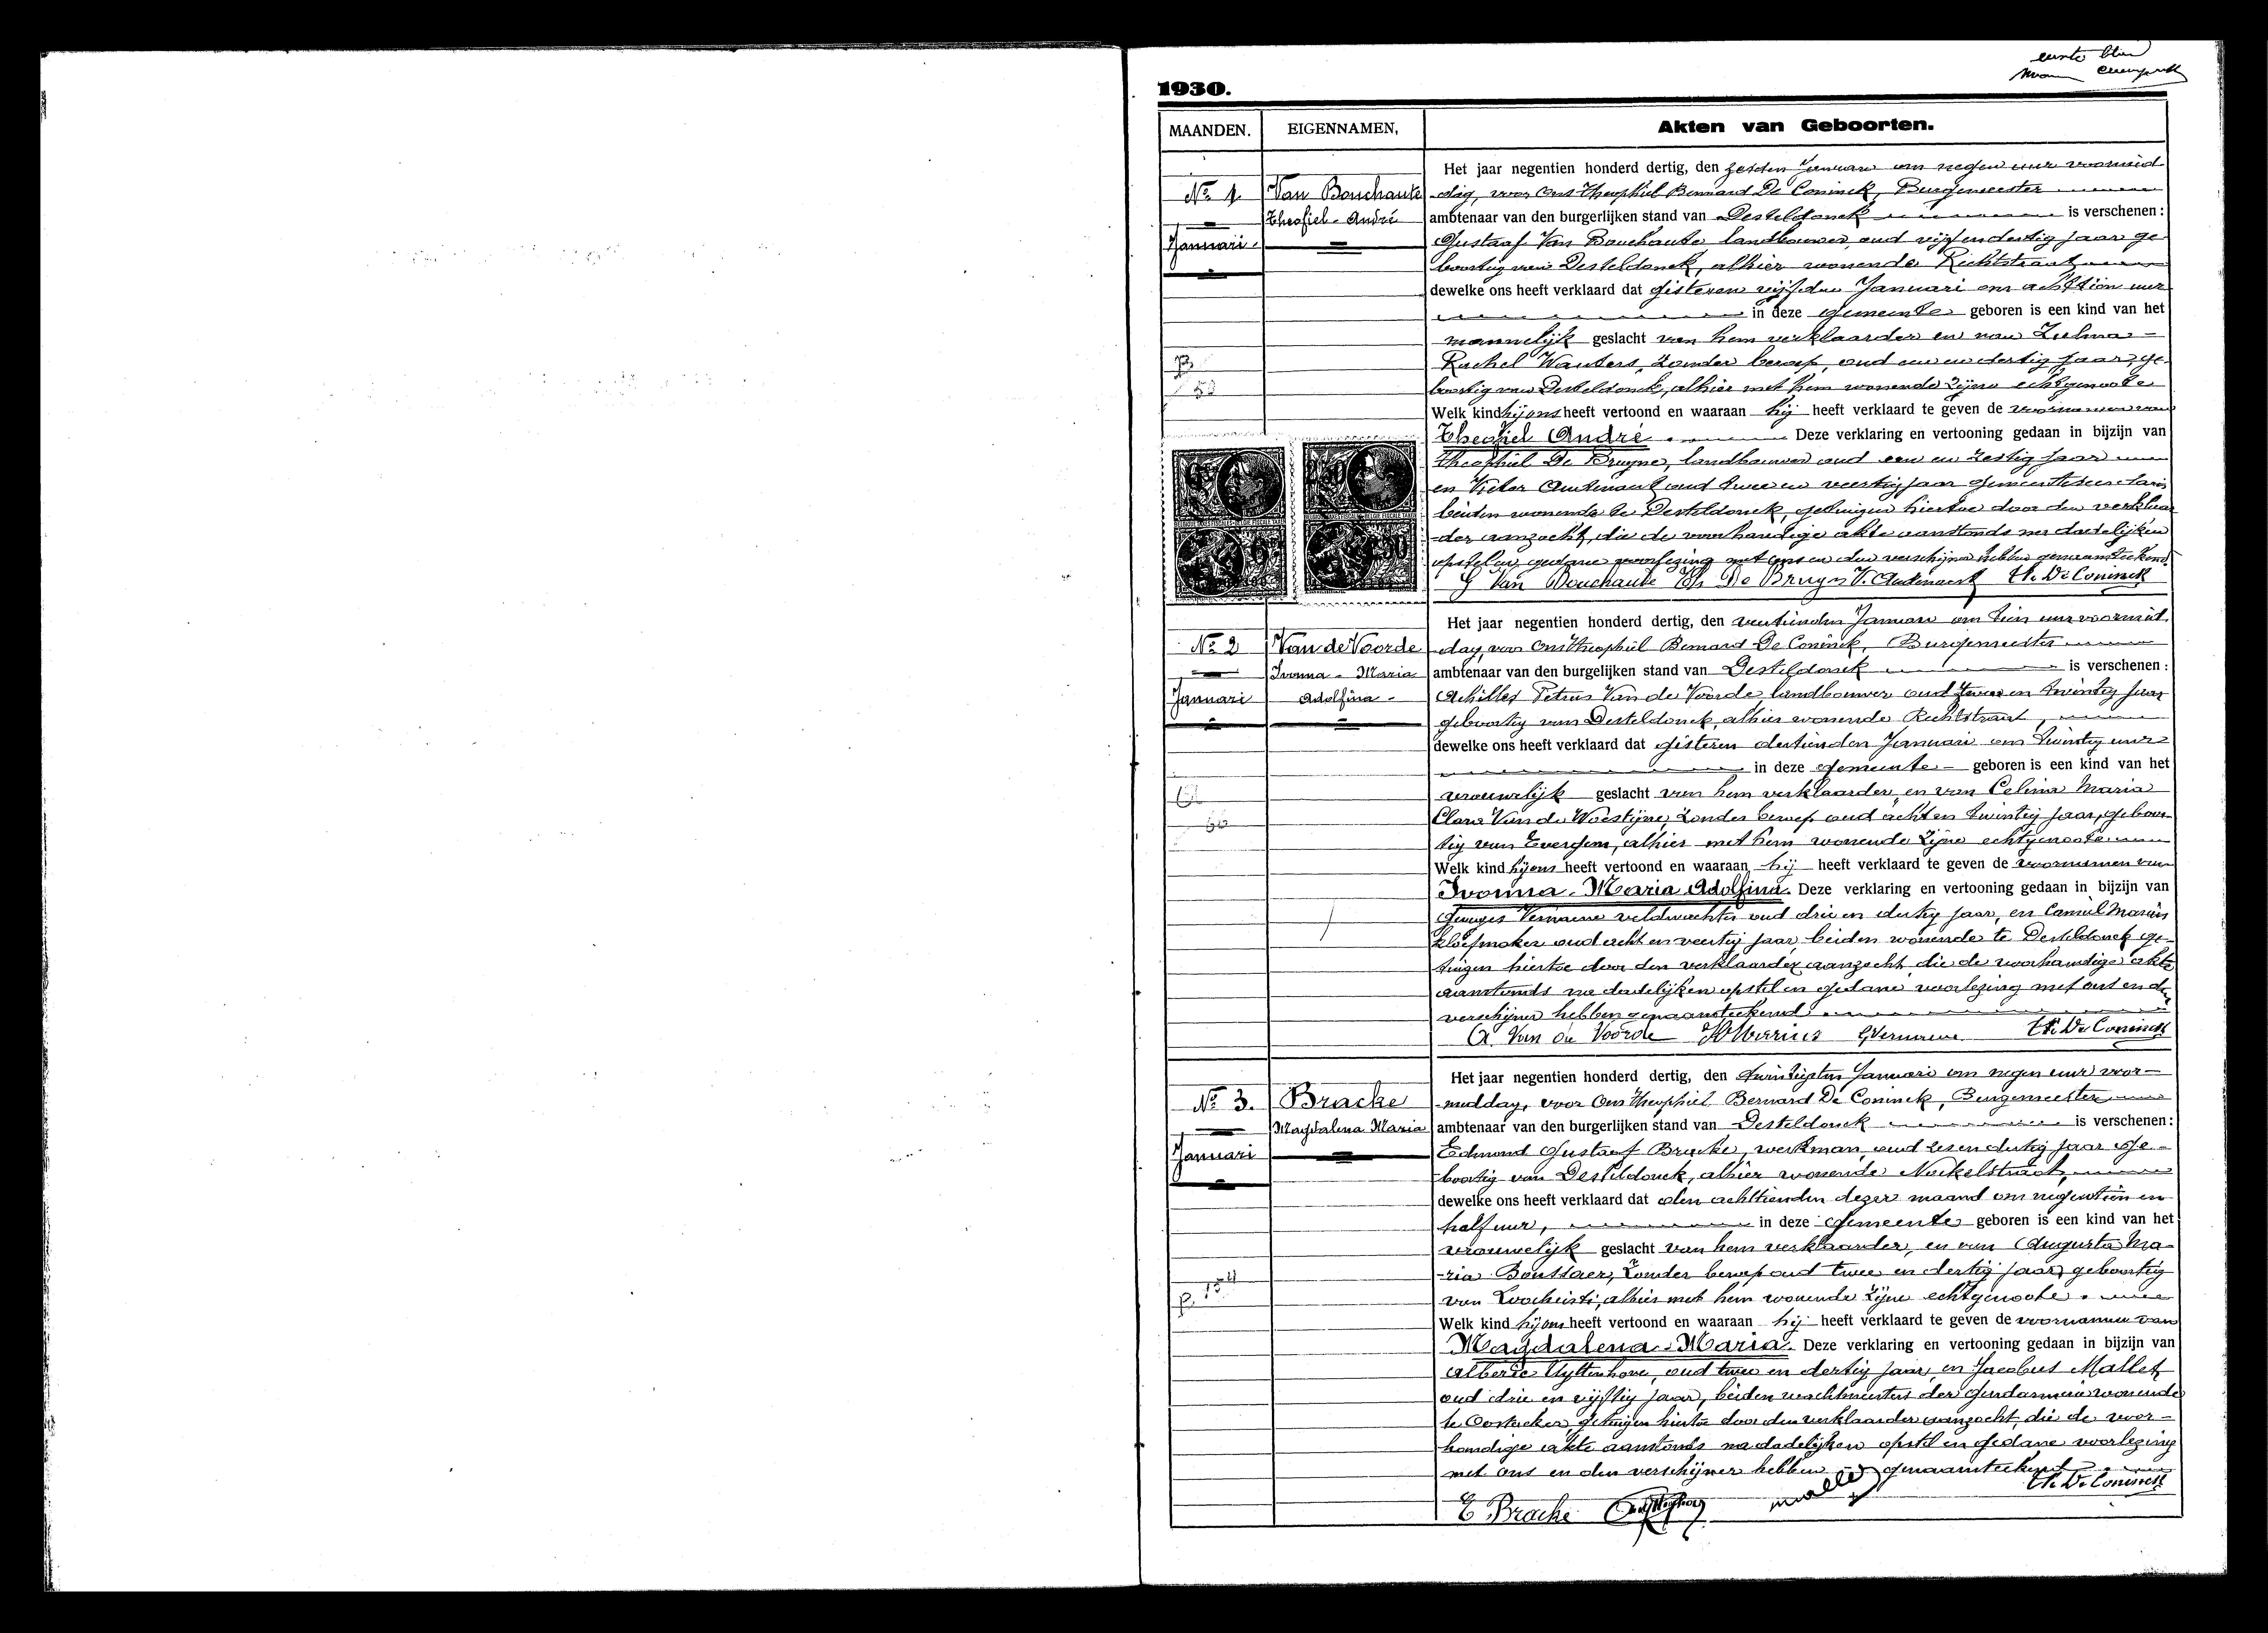 eerste blad
1930.
MAANDEN. EIGENNAMEN, Akten van Geboorten.
Het jaar negentien honderd dertig, den zesden Januari om negen uur voormid
No 1 Van Bouchaute -dag, voor Ons Theophiel Bernard De Coninck, Burgemeester
Theofiel-André ambtenaar van den burgerlijken stand van Desteldonck is verschenen:
Januari. Gustaaf Van Bouchaute landbouwer, oud vijf en dertig jaar ge
boortig van Desteldonck, alhier wonende Rechtstraat
dewelke ons heeft verklaard dat gisteren vijfden Januari om achttien uur
in deze gemeente geboren is een kind van het
mannelijk geslacht van hem verklaarder en van Zulma
Rachel Wauters, zonder beroep, oud een en dertig jaar, ge-
boortig van Desteldonck, alhier met hem wonende zijne echtgenoote
Welk kind hij ons heeft vertoond en waaraan hij heeft verklaard te geven de voornamen van
Theofiel André. Deze verklaring en vertooning gedaan in bijzijn van
Theophiel De Bruyne, landbouwer oud een en zestig jaar
en Victor Audenaert oud twee en veertig jaar gemeentesecretaris
beiden wonende te Desteldonck, getuigen hiertoe door den verklaar
-der aanzocht, die de voorhandige akte aanstonds na dadelijken
opstel en gedane voorlezing met ons en den verschijner hebben genaamteekend.
G Van Bouchaute Th De Bruyne V. Audenaert Th. De Coninck
Het jaar negentien honderd dertig, den veertienden Januari om tien uur voormid
No 2 Van de Voorde -dag, voor Ons Theophiel Bernard De Coninck, Burgemeester
Ivonna-Maria ambtenaar van den burgelijken stand van Desteldonck is verschenen:
Januari Adolfina- Achilles Petrus Van de Voorde landbouwer oud twee en twintig jaar
geboortig van Desteldonck, alhier wonende Rechtstraat,
dewelke ons heeft verklaard dat gisteren dertienden Januari om twintig uur
in deze gemeente geboren is een kind van het
vrouwelijk geslacht van hem verklaarder, en van Celina Maria
Clara Van de Woestijne, zonder beroep oud acht en twintig jaar, geboor
tig van Evergem, alhier met hem wonende zijne echtgenoote.
Welk kind hij ons heeft vertoond en waaraan hij heeft verklaard te geven de voornamen van
Ivonna-Maria Adolfina. Deze verklaring en vertooning gedaan in bijzijn van
Georges veldwachter oud drie en dertig jaar, en Camiel Mariën
kloefmaker oud acht en veertig jaar beiden wonende te Desteldonck ge-
tuigen hiertoe door den verklaarder aanzocht, die de voorhandige akte
aanstonds na dadelijken opstel en gedane voorlezing met ons en den
verschijner hebben genaamteekend.
A. Van de Voorde Th. De Coninck
Het jaar negentien honderd dertig, den twintigsten Januari om negen uur voor-
No 3. Bracke -middag, voor Ons Theophiel Bernard De Coninck, Burgemeester
Magdalena Maria ambtenaar van den burgerlijken stand van Desteldonck is verschenen:
Januari Edmond Gustaaf Bracke, werkman, oud zes en dertig jaar ge-
-boortig van Desteldonck, alhier wonende
dewelke ons heeft verklaard dat den achttienden dezer maand om negentien en
half uur, in deze gemeente geboren is een kind van het
vrouwelijk geslacht van hem verklaarder, en van Augusta Ma-
-ria zonder beroep oud twee en dertig jaar, geboortig
van Loochristi, alhier met hem wonende zijne echtgenoote.
Welk kind hij ons heeft vertoond en waaraan hij heeft verklaard te geven de voornamen van
Magdalena-Maria. Deze verklaring en vertooning gedaan in bijzijn van
Alberic Uyttenhove, oud twee en dertig jaar, en Jacobus Mallet,
oud drie en vijftig jaar, beiden wachtmeesters der gendarmerie wonende
te Oostacker, getuigen hiertoe door den verklaarder aanzocht, die de voor-
handige akte aanstonds na dadelijken opstel en gedane voorlezing
met ons en den verschijner hebben genaamteekend
E Bracke Mallet Th. De Coninck